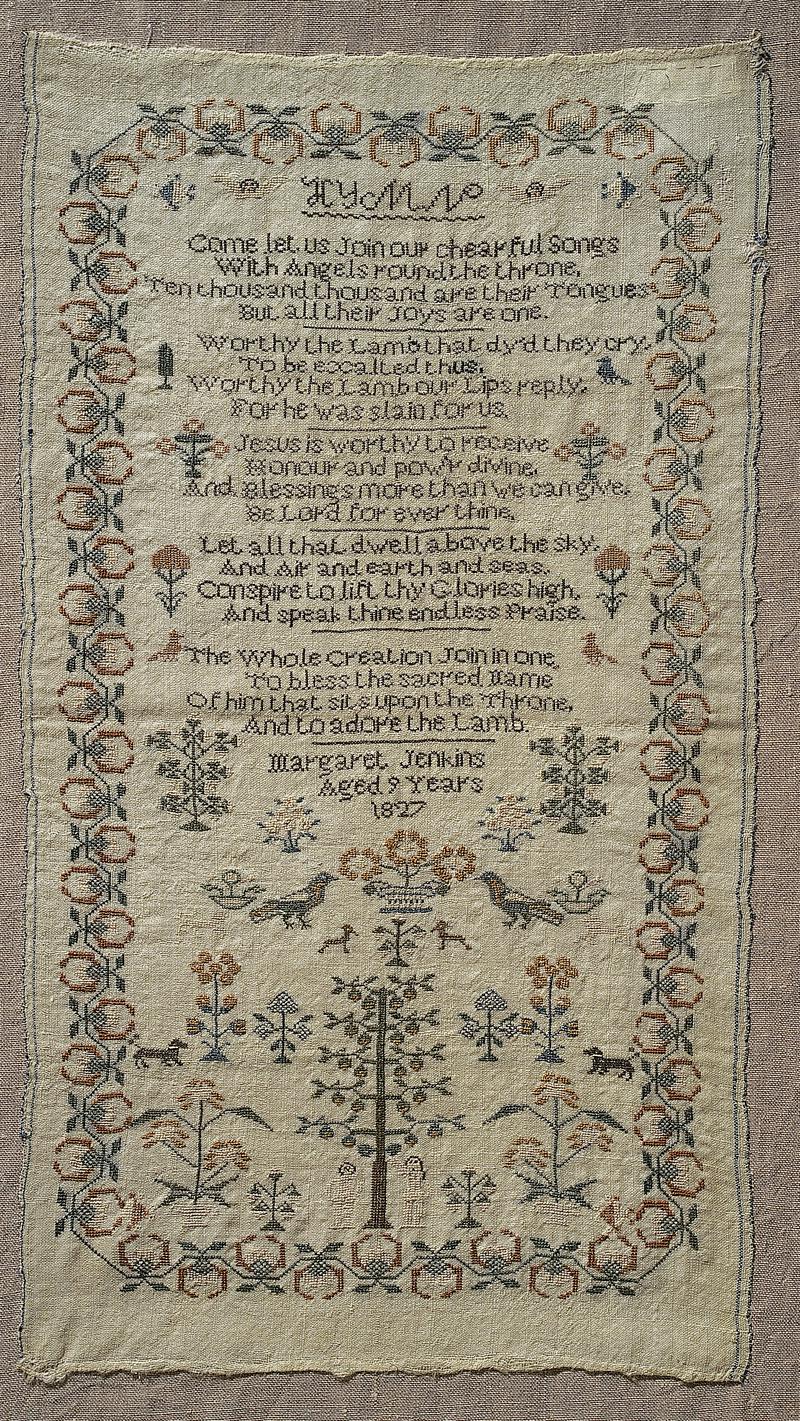 HYMN
Come let us Join our chearful Songs
With Angels round the throne,
Ten thousand thousand are their Tongues
But all their Joys are one.
Worthy the Lamb that dy'd they cry.
To be excalted thus.
Worthy the Lamb our Lips reply.
For he was slain for us.
Jesus is worthy to receive
Honour and pow'r divine,
And Blessings more than we can give.
Be Lord for ever thine.
Let all that dwell above the sky.
And Air and earth and seas.
Conspire to lift thy Glories high.
And speak thine endless Praise.
The Whole Creation Join in one,
To bless the sacred Name
Of him that sits upon the Throne,
And to adore the Lamb.
Margaret Jenkins
Aged 9 Years
1827